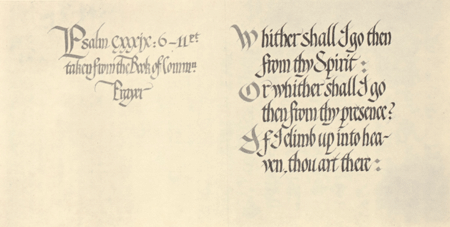 Psalm cxxxix: 6–11
taken from the Book of Common
Prayer
Whither shall I go then
from thy Spirit :
Or whither shall I go
then from thy presence?
If I climb up into hea-
ven, thou art there :